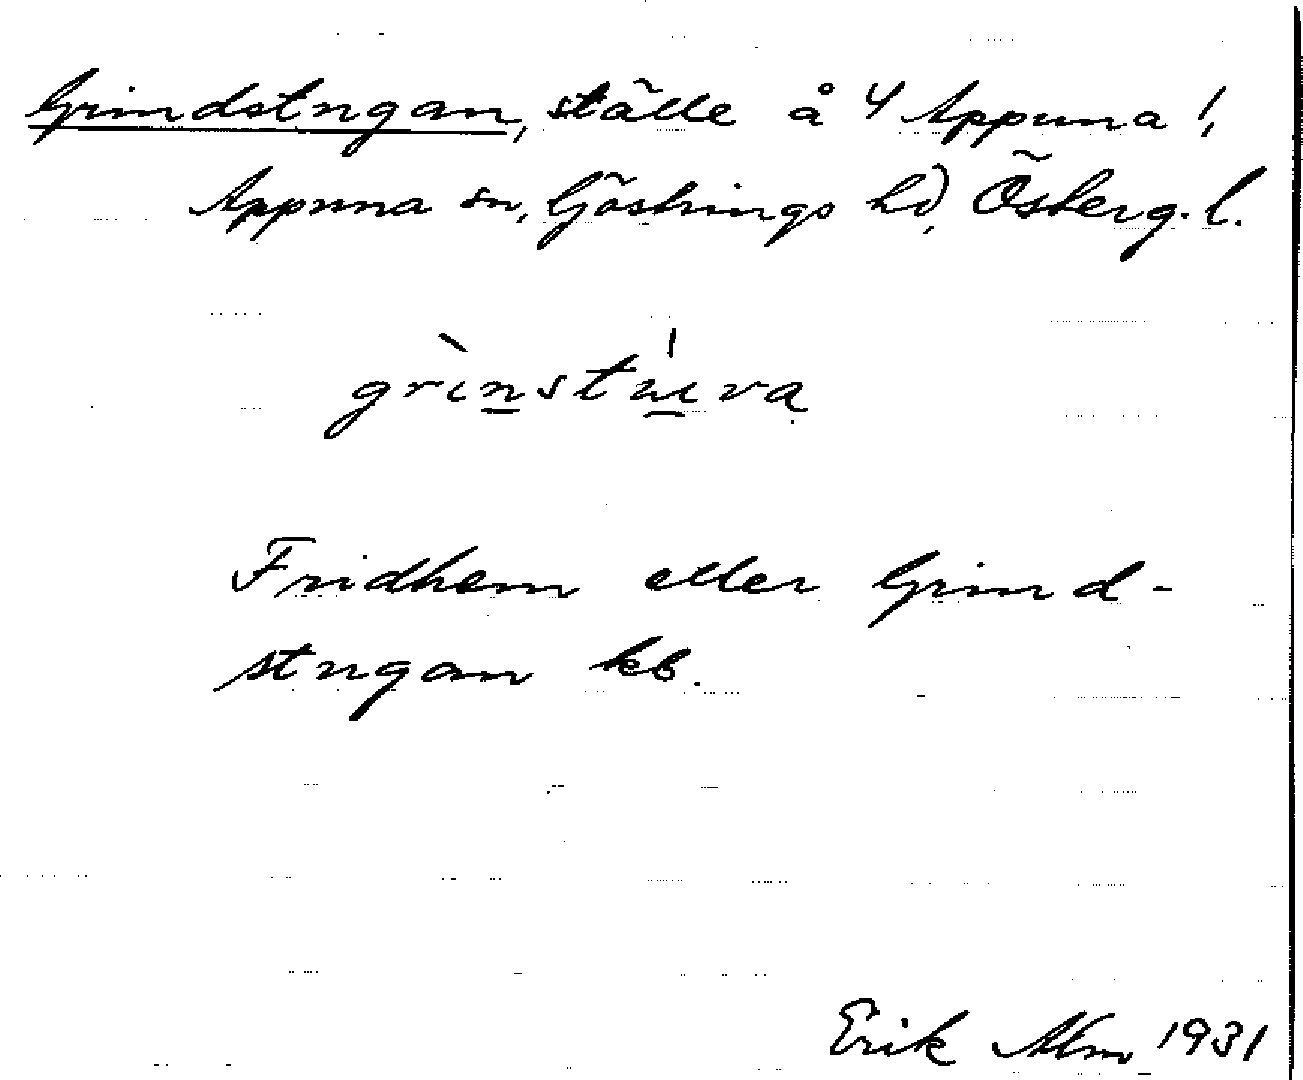 Grindstugan, ställe å 4 Appuna !,
Appuna sn, Göstrings hd, Österg. l.
grìnstúva
Fridhem eller Grind-
stugan kb.
Erik Alm 1931